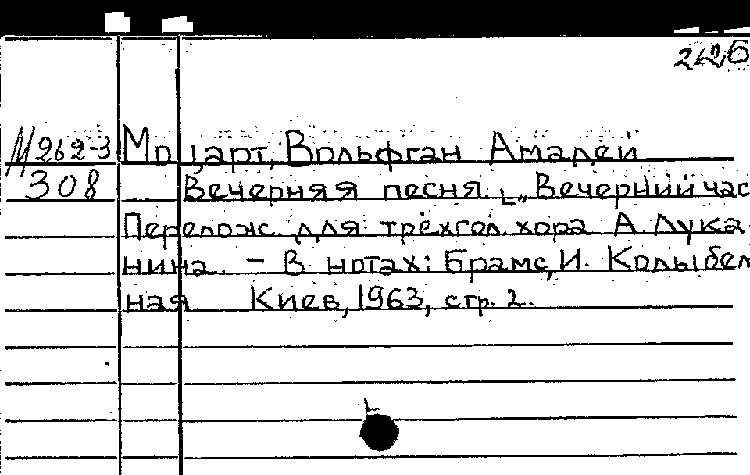 226
М262-3 Моцарт, Вольфган Амадей
308 Вечерняя песня. „Вечерний час
Перелож. для трёхгол. хора А. Лука
нина. – В нотах: Брамс, И. Колыбел
ная Киев, 1963, стр. 2.